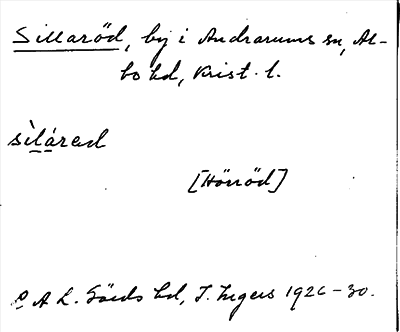 Sillaröd, by i Andrarums sn, Al-
bo hd, Krist. l.
sìlárɘd
[Hörröd]
A L. Gärds hd, I. Ingers 1926–30.